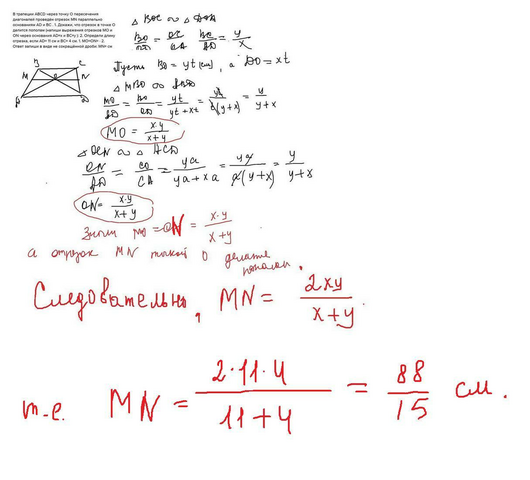 В трапеции ABCD через точку O пересечения
диагоналей проведен отрезок MN параллельно
основаниям AD и BC. 1. Докажи, что отрезок в точке O
делится пополам (напиши выражения отрезков MO и
ON через основания AD=x и BC=y). 2. Определи длину
отрезка, если AD= 11 см и BC= 4 см. 1. MO=ON= · 2.
Ответ запиши в виде не сокращённой дроби: MN= см.
B C
M O N
A D
△ BOC ∾ △ DOA
BO/OD = OC/OA BC/AD = y/x
Пусть BO = yt (см), а DO = xt
△ MBO ∾ △ ABD
MO/AD = BO/BD = yt/(yt+xt) = yt/(t(y+x)) = y/(y+x)
MO = x·y/(x+y)
△ OCN ∾ △ ACD
ON/AD = CO/CA = ya/(ya+xa) = ya/(a(y+x)) = y/(y+x)
ON = x·y/(x+y)
Значит MO = ON = x·y/(x+y)
а отрезок MN точкой O делится
пополам.
Следовательно, MN = 2xy/(x+y).
т.е. MN = 2·11·4/(11+4) = 88/15 см.